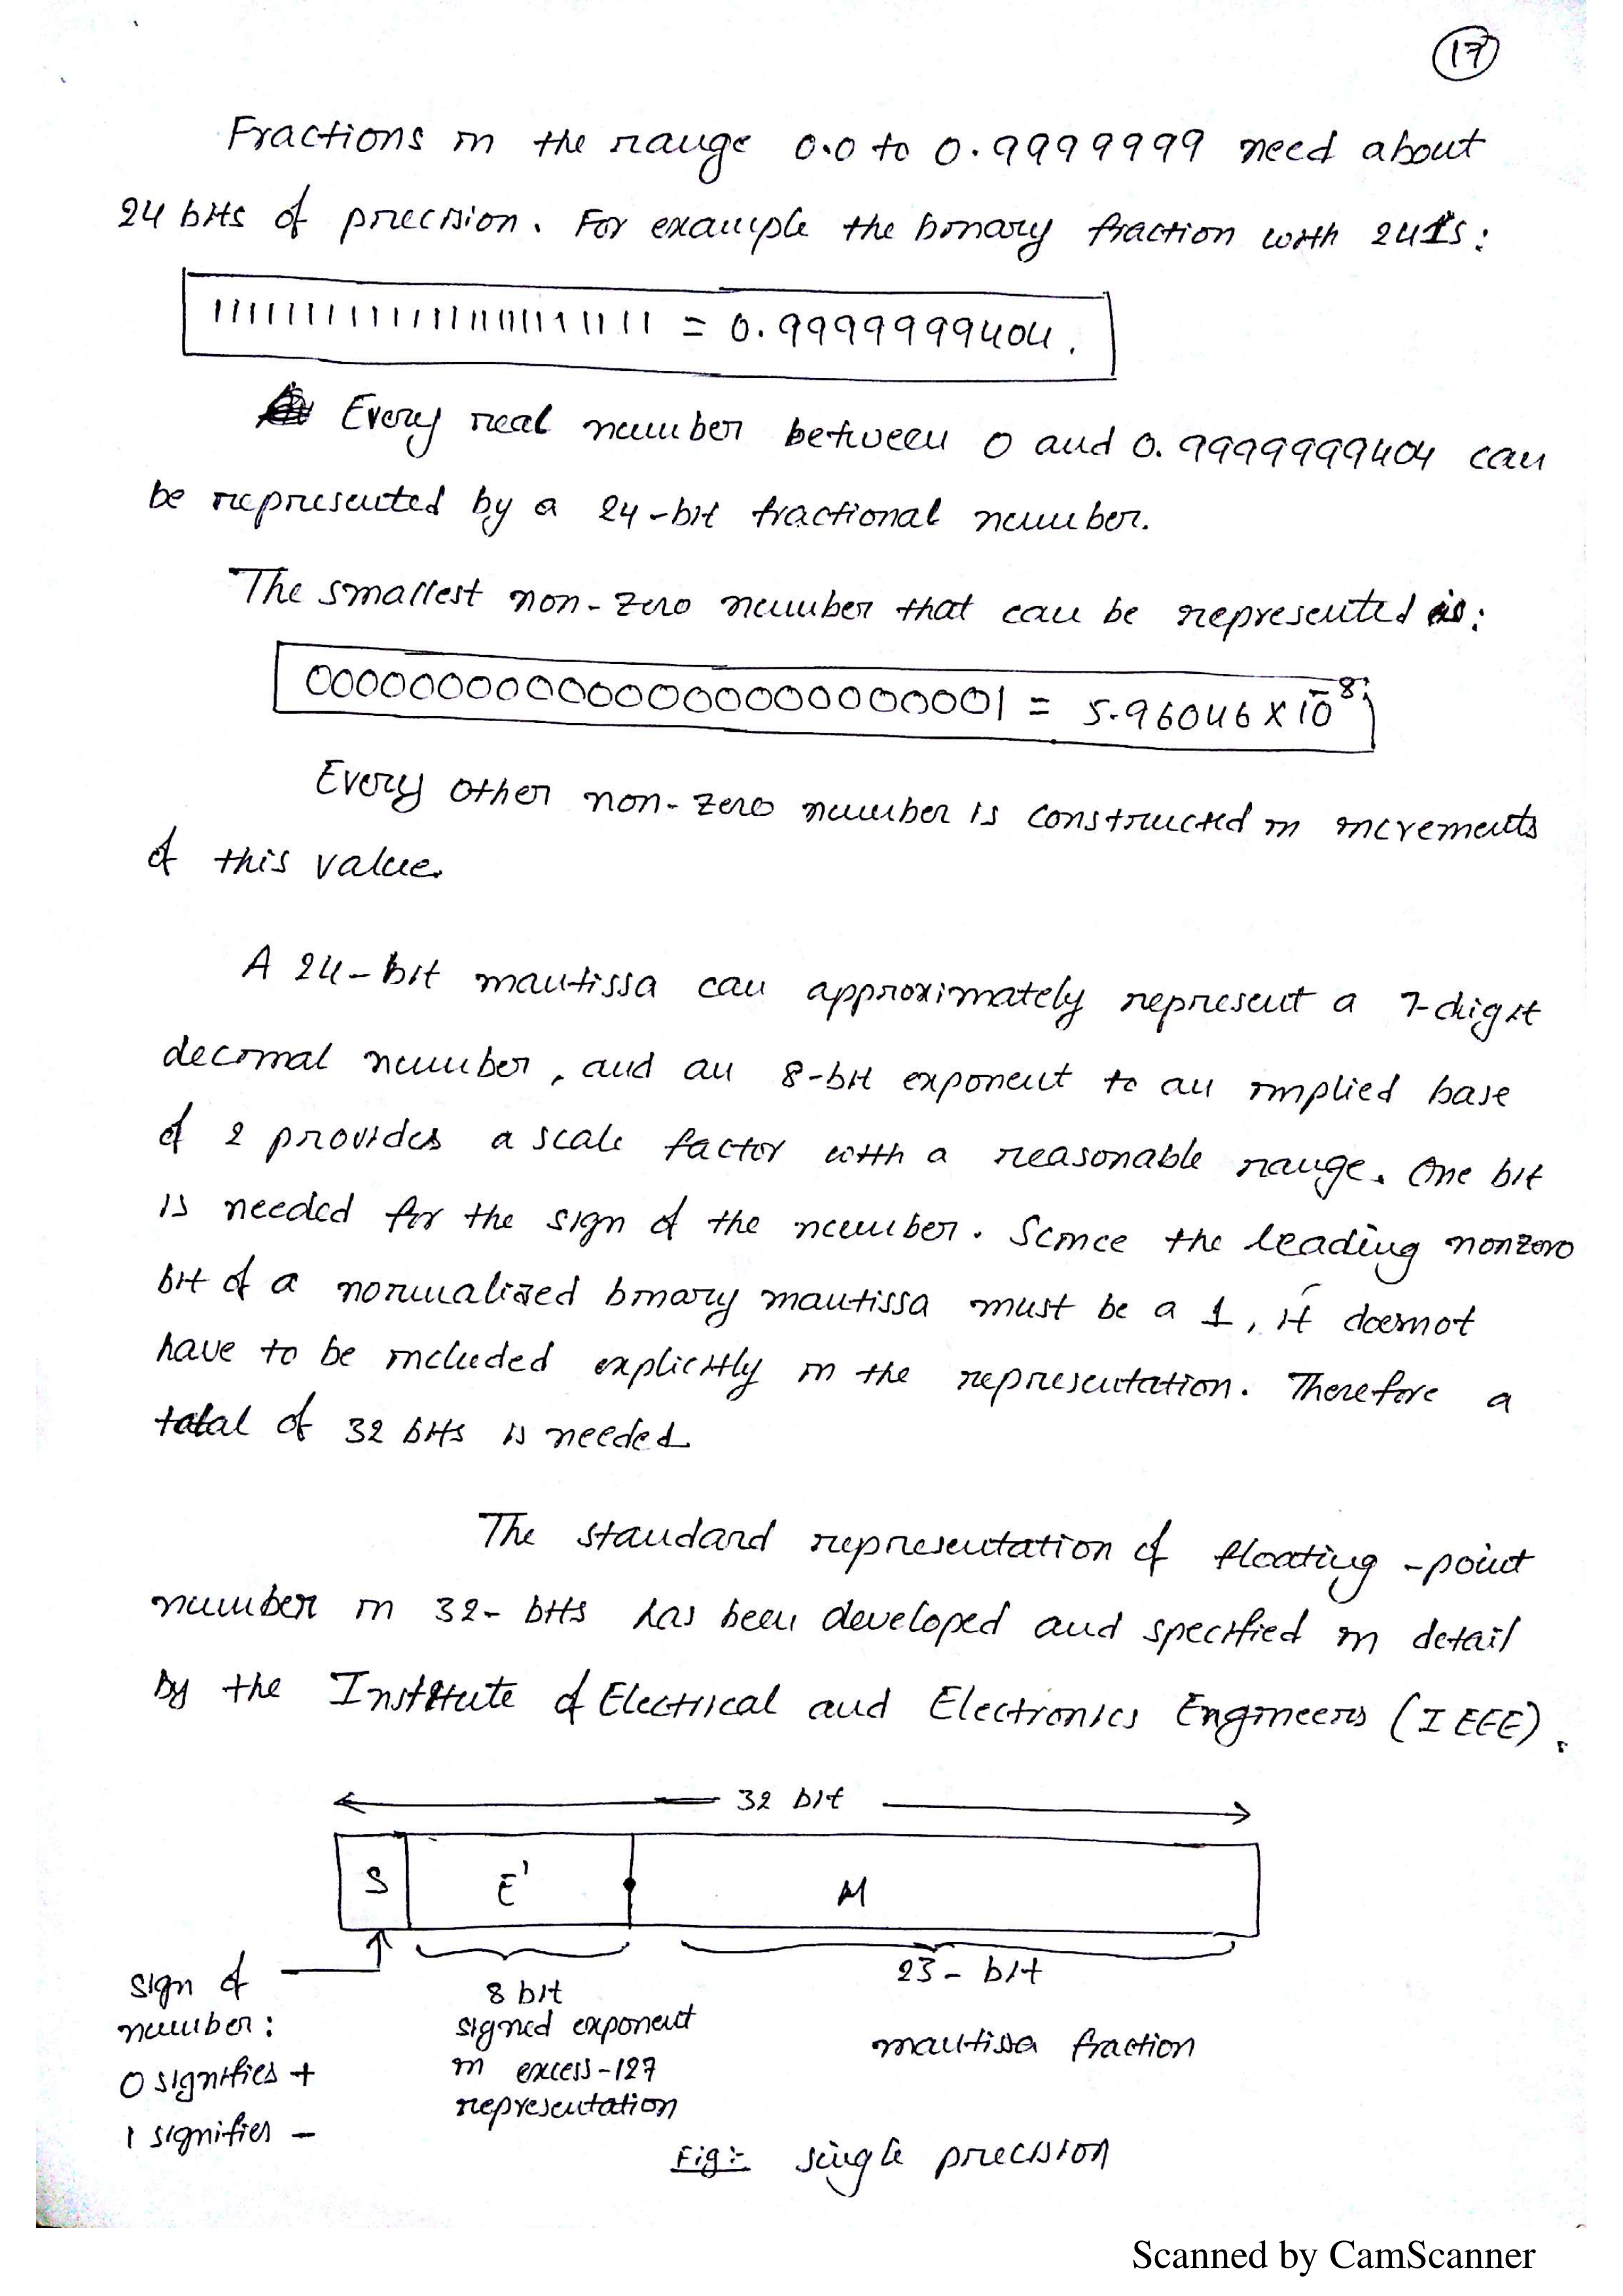 17
Fractions in the range 0.0 to 0.9999999 need about
24 bits of precision. For example the binary fraction with 24 1s:
111111111111111111111111 = 0.9999999404.
Every real number between 0 and 0.9999999404 can
be represented by a 24-bit fractional number.
The smallest non-zero number that can be represented is:
000000000000000000000001 = 5.96046 x 10^-8;
Every other non-zero number is constructed in increments
of this value.
A 24-bit mantissa can approximately represent a 7-digit
decimal number, and an 8-bit exponent to an implied base
of 2 provides a scale factor with a reasonable range. One bit
is needed for the sign of the number. Scince the leading nonzero
bit of a normalized binary mantissa must be a 1, it doesnot
have to be included explicitly in the representation. Therefore a
total of 32 bits is needed.
The standard representation of floating-point
number in 32-bits has been developed and specified in detail
by the Institute of Electrical and Electronics Engineers (IEEE).
32 bit
S E' M
sign of
number:
0 signifies +
1 signifies -
8 bit
signed exponent
in excess-127
representation
23-bit
mantissa fraction
Fig:- single precision
Scanned by CamScanner